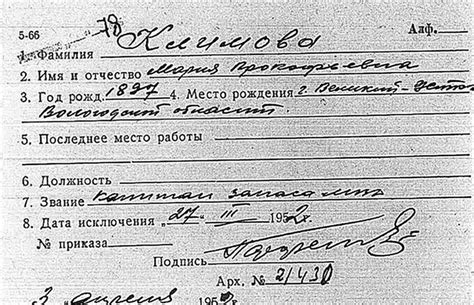 78
5-66 Алф.
1. Фамилия Климова
2. Имя и отчество Мария Прокофьевна
3. Год рожд. 1897 4. Место рождения г. Великий-Устюг
Вологодской области
5. Последнее место работы
6. Должность
7. Звание капитан запаса
8. Дата исключения "27" III 1952 г.
№ приказа
Подпись
Арх. № 21430
3 апреля 195